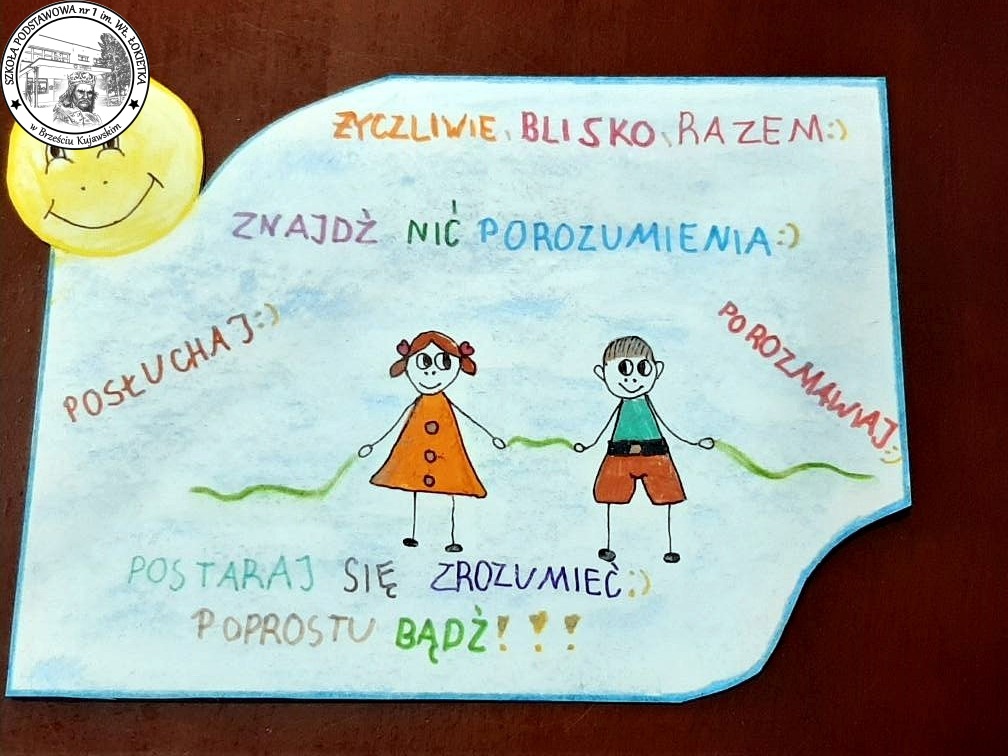 SZKOŁA PODSTAWOWA nr 1 im. WŁ. ŁOKIETKA
w Brześciu Kujawskim
ŻYCZLIWIE, BLISKO, RAZEM:)
ZNAJDŹ NIĆ POROZUMIENIA:)
POSŁUCHAJ:)
POROZMAWIAJ:)
POSTARAJ SIĘ ZROZUMIEĆ:)
POPROSTU BĄDŹ!!!